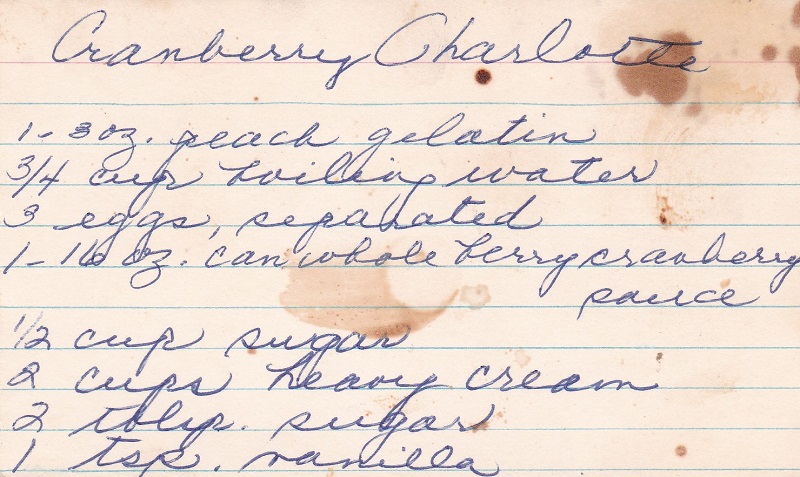 Cranberry Charlotte
1- 3 oz. peach gelatin
3/4 cup boiling water
3 eggs, separated
1- 16 oz. can whole berry cranberry
sauce
1/2 cup sugar
2 cups heavy cream
2 tblsp. sugar
1 tsp. vanilla